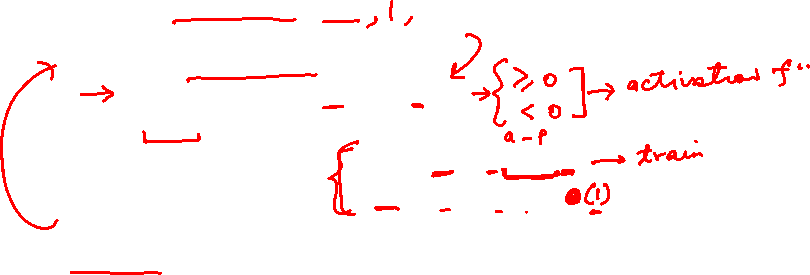 , 1,
→ { ≥ 0 ] → activation fⁿ
< 0
a - p
→ train
(1)